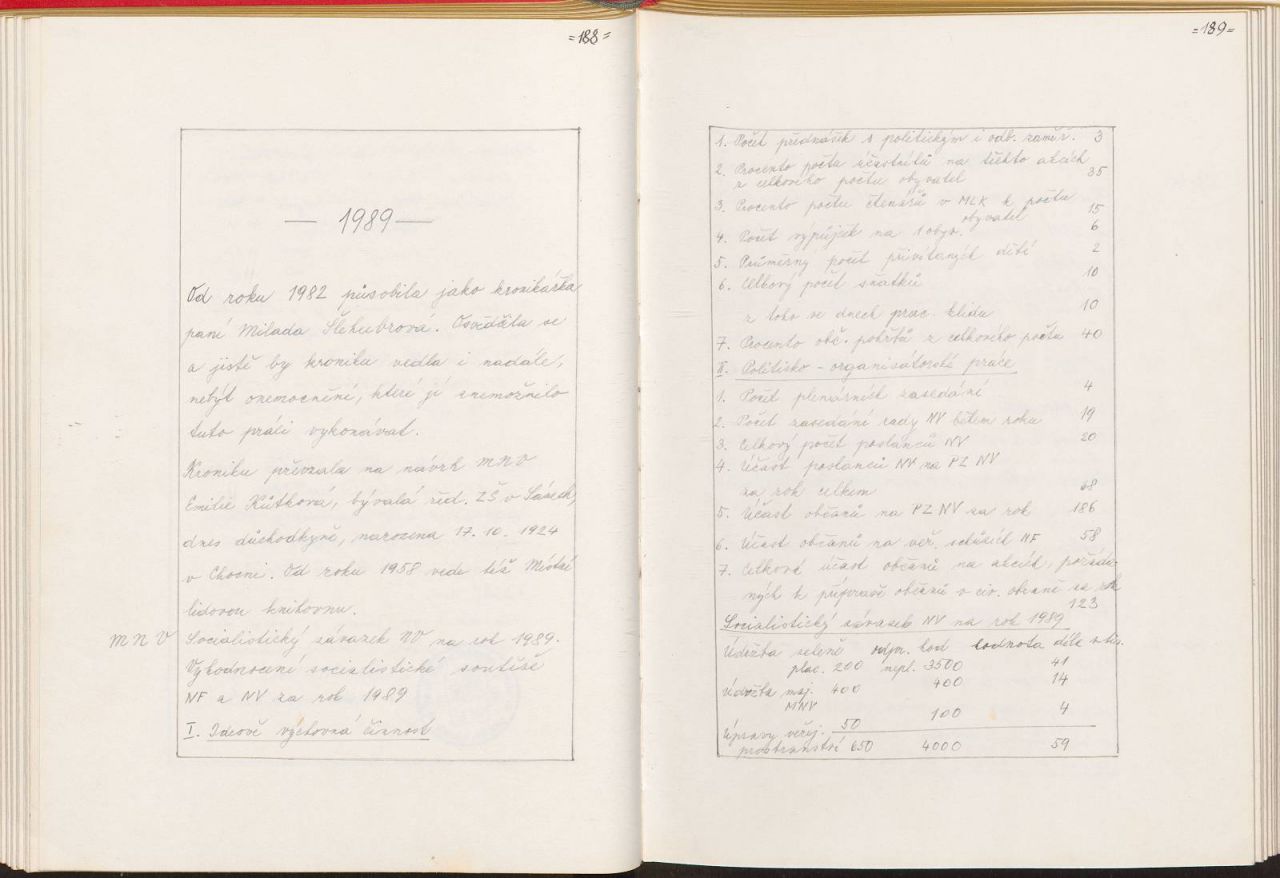 =188=
— 1989 —
Od roku 1982 působila jako kronikářka
paní Milada Osvědčila se
a jistě by kroniku vedla i nadále,
nebýt onemocnění, které jí znemožnilo
tuto práci vykonávat.
Kroniku převzala na návrh MNV
Emilie Kůtková, bývalá řed. ZŠ v Sánech,
dnes důchodkyně, narozena 17. 10. 1924
v Chocni. Od roku 1958 vede též Místní
lidovou knihovnu.
MNV Socialistický závazek NV na rok 1989.
Vyhodnocení socialistické soutěže
NF a NV za rok 1989
I. Ideově výchovná činnost
=189=
1. Počet přednášek s politickým i odb. zaměř. 3
2. Procento počtu účastníků na těchto akcích
z celkového počtu obyvatel 35
3. Procento počtu čtenářů v MLK k počtu
obyvatel 15
4. Počet výpůjček na 1 obyv. 6
5. Průměrný počet přivítaných dětí 2
6. Celkový počet sňatků 10
z toho ve dnech prac. klidu 10
7. Procento obč. pohřbů z celkového počtu 40
II. Politicko - organisátorské práce
1. Počet plenárních zasedání 4
2. Počet zasedání rady NV během roku 19
3. Celkový počet poslanců NV 20
4. Účast poslanců NV na PZ NV
za rok celkem 68
5. Účast občanů na PZ NV za rok 186
6. Účast občanů na veř. schůzích NF 58
7. Celková účast občanů na akcích, pořáda-
ných k přípravě občanů v civ. obraně za rok
123
Socialistický závazek NV na rok 1989
Údržba zeleně odpr. hod hodnota díla v tis.
plac. 200 nepl. 3500 41
Údržba maj. 400 400 14
MNV
Úpravy veřej. 50 100 4
prostranství 650 4000 59